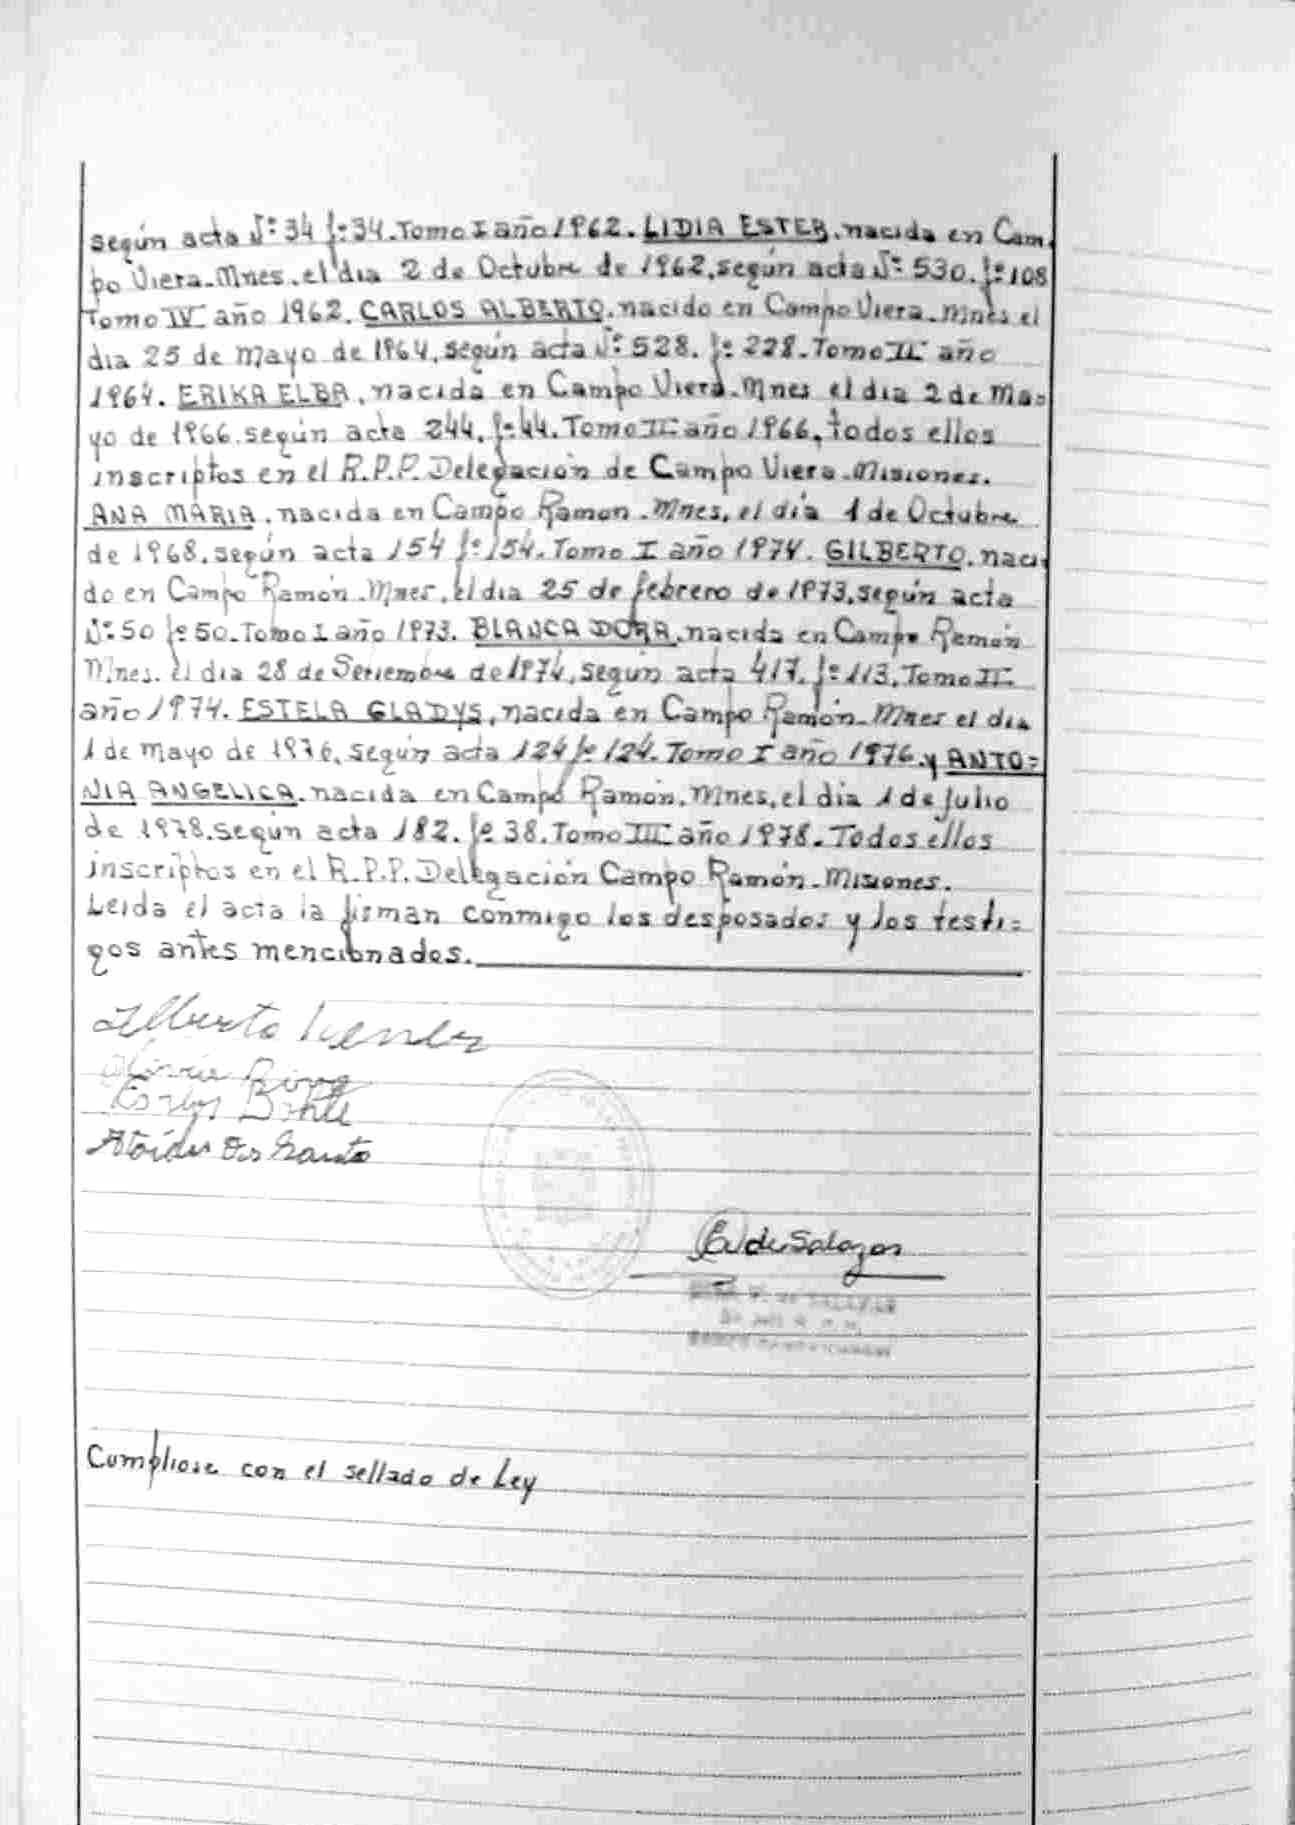 según acta Nº 34 fº 34. Tomo I año 1962. LIDIA ESTER, nacida en Cam-
po Viera-Mnes. el dia 2 de Octubre de 1962, según acta Nº 530. fº 108
Tomo IV año 1962. CARLOS ALBERTO, nacido en Campo Viera-Mnes el
dia 25 de Mayo de 1964, según acta Nº 528. fº 228. Tomo II año
1964. ERIKA ELBA, nacida en Campo Viera-Mnes el dia 2 de Ma=
yo de 1966, según acta 244, fº 44. Tomo II año 1966, todos ellos
inscriptos en el R.P.P. Delegación de Campo Viera-Misiones.
ANA MARIA, nacida en Campo Ramon-Mnes, el día 1 de Octubre
de 1968, según acta 154 fº 154. Tomo I año 1974. GILBERTO, naci-
do en Campo Ramón-Mnes, el dia 25 de febrero de 1973, según acta
Nº 50 fº 50. Tomo I año 1973. BLANCA DORA, nacida en Campo Ramón
Mnes. el dia 28 de Setiembre de 1974, según acta 417. fº 113. Tomo II
año 1974. ESTELA GLADYS, nacida en Campo Ramón-Mnes el dia
1 de Mayo de 1976, según acta 124 fº 124. Tomo I año 1976. y ANTO=
NIA ANGELICA, nacida en Campo Ramón, Mnes, el dia 1 de Julio
de 1978, según acta 182. fº 38. Tomo III año 1978. Todos ellos
inscriptos en el R.P.P. Delegación Campo Ramón-Misiones.
Leida el acta la firman conmigo los desposados y los testi=
gos antes mencionados.
Alberto
Carlos
Dos Santo
de Salazar
de SALAZAR
Cumpliose con el sellado de Ley